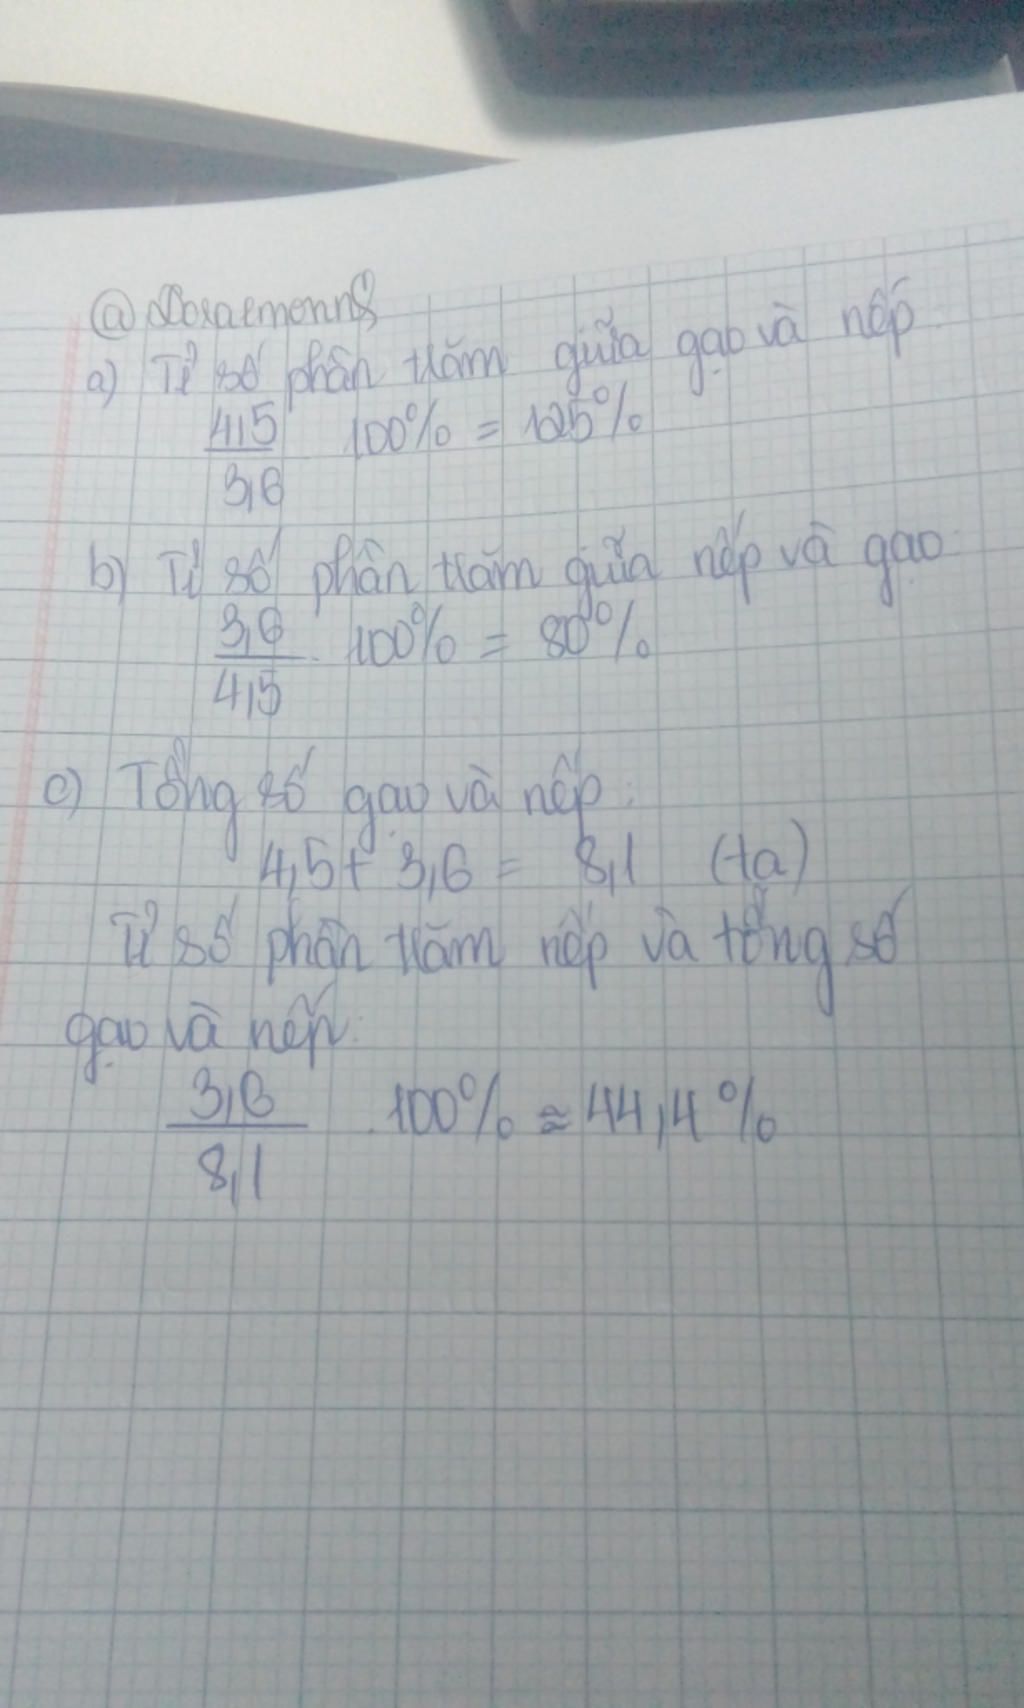 @Doraemonn8
a) Tỉ số phần trăm giữa gạo và nếp
4,5
3,6
100% = 125%
b) Tỉ số phần trăm giữa nếp và gạo
3,6
4,5
. 100% = 80%
c) Tổng số gạo và nếp:
4,5 + 3,6 = 8,1 (tạ)
Tỉ số phần trăm nếp và tổng số
gạo và nếp:
3,6
8,1
. 100% ≈ 44,4%